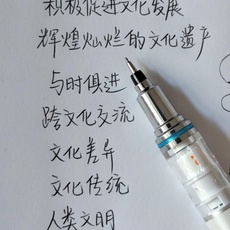 积极促进文化发展
辉煌灿烂的文化遗产
与时俱进
跨文化交流
文化差异
文化传统
人类文明